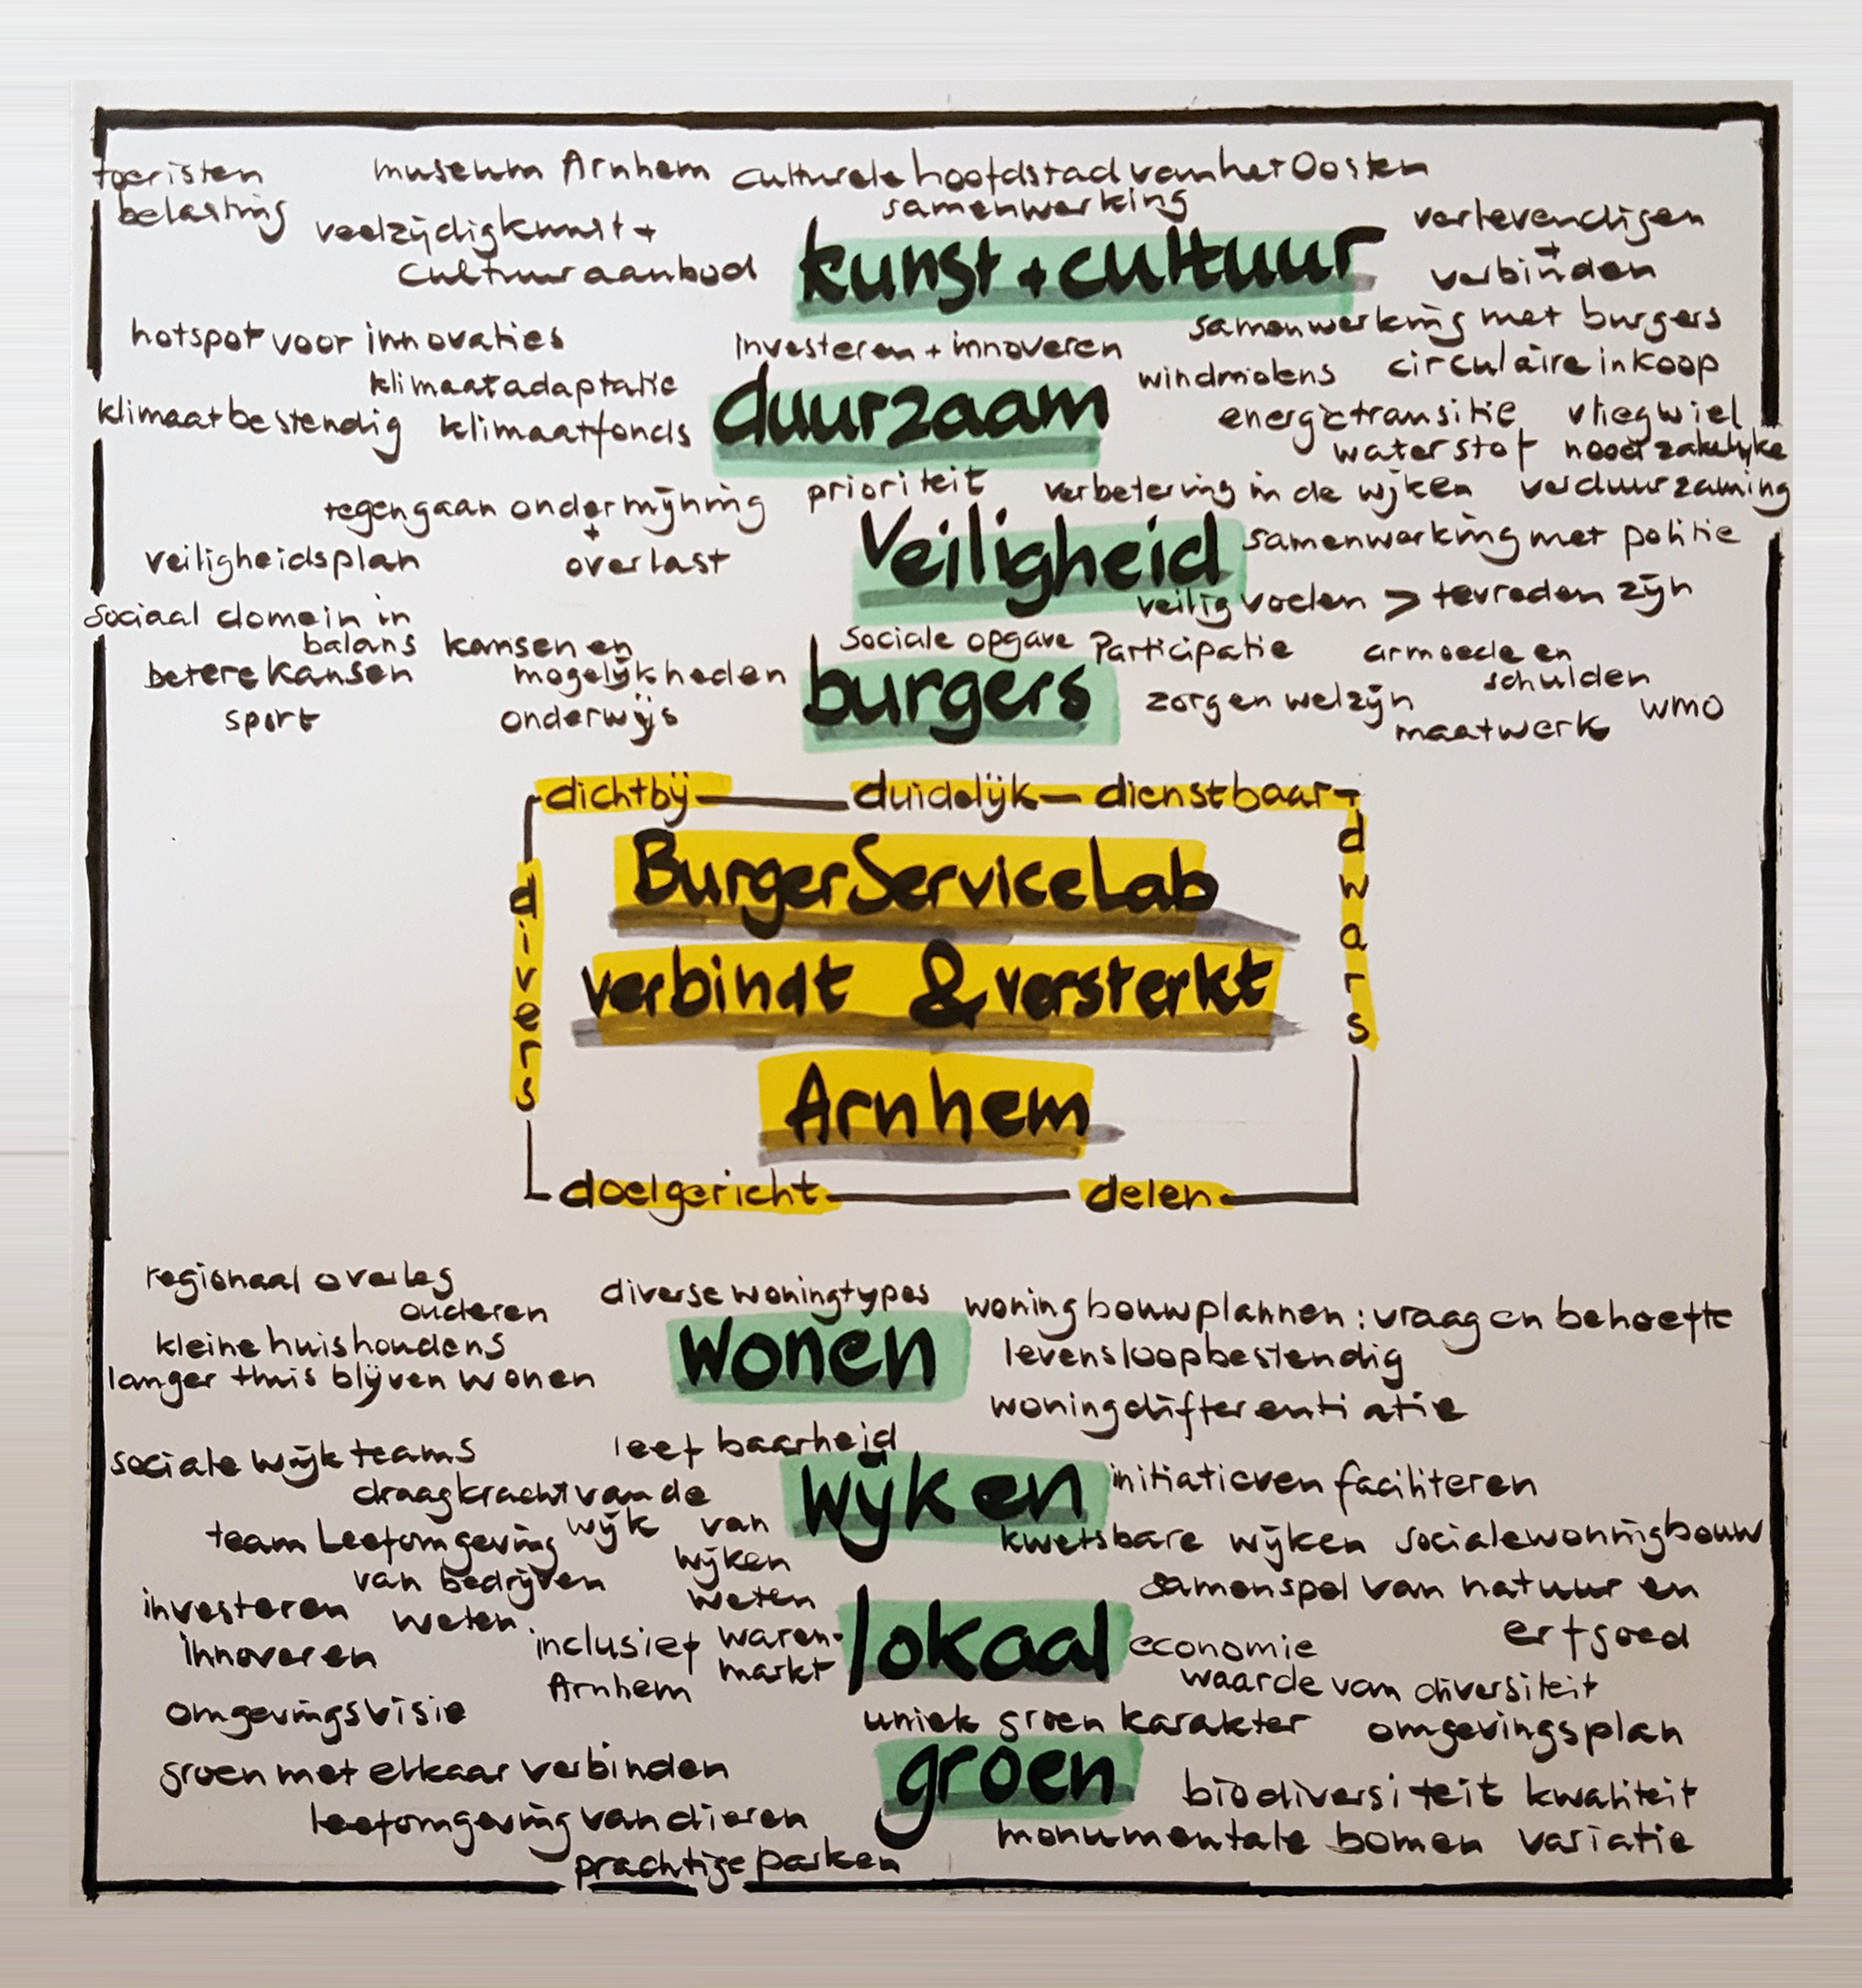 toeristen belasting
museum Arnhem
culturele hoofdstad van het Oosten
samenwerking
veelzijdig kunst +
cultuur aanbod
kunst + cultuur
verlevendigen
+
verbinden
hotspot voor innovaties
investeren + innoveren
samenwerking met burgers
klimaatadaptatie
windmolens
circulaire inkoop
klimaatbestendig
klimaatfonds
duurzaam
energietransitie
vliegwiel
waterstof
noodzakelijke
verduurzaming
tegengaan ondermijning
+
overlast
prioriteit
verbetering in de wijken
veiligheidsplan
Veiligheid
samenwerking met politie
veilig voelen > tevreden zijn
sociaal domein in
balans
kansen en
mogelijkheden
sociale opgave
Participatie
armoede en
schulden
betere kansen
burgers
zorg en welzijn
wmo
sport
onderwijs
maatwerk
dichtbij
duidelijk
dienstbaar
dwars
divers
BurgerServiceLab
verbindt & versterkt
Arnhem
doelgericht
delen
regionaal overleg
ouderen
diverse woningtypes
woningbouwplannen: vraag en behoefte
kleine huishoudens
wonen
levensloopbestendig
langer thuis blijven wonen
woningdifferentiatie
sociale wijkteams
leefbaarheid
draagkracht van de
wijk
wijken
initiatieven faciliteren
team Leefomgeving
van
wijken
weten
kwetsbare wijken
socialewoningbouw
van bedrijven
weten
samenspel van natuur en
erfgoed
investeren
innoveren
inclusief
Arnhem
waren-
markt
lokaal
economie
waarde van diversiteit
omgevingsvisie
uniek groen karakter
omgevingsplan
groen met elkaar verbinden
groen
biodiversiteit
kwaliteit
leefomgeving van dieren
monumentale bomen
variatie
prachtige parken